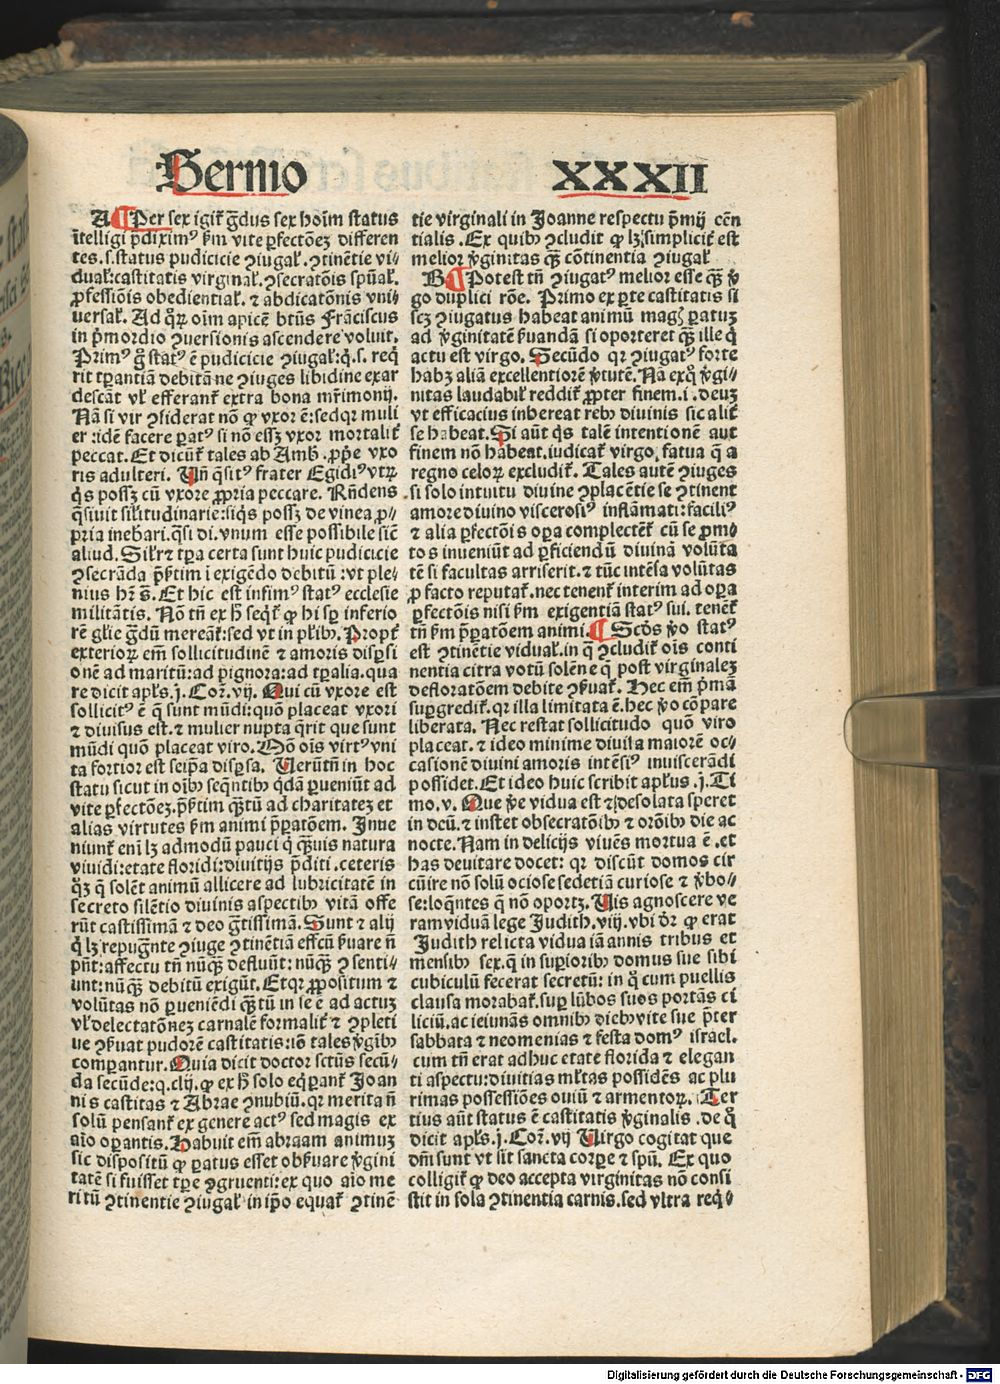 Sermo XXXII
A ¶ Per sex igit̄ g̃dus sex hoīm status
ītelligi p̃diximꝰ ẜm vite ꝑfectōeꝫ differen
tes.s.status pudicicie ꝯiugal̓.ꝯtinētie vi⸗
dual̓:castitatis virginal̓.ꝯsecratōis spūal̓.
ꝓfessiōis obediential̓.⁊ abdicatōnis vni⸗
uersal̓. Ad q̊ꝝ oīm apicē btūs Frāciscus
in p̃mordio ꝯuersionis ascendere voluit.
Primꝰ g̊ statꝰ ē pudicicie ꝯiugal̓:q̄.s. req̄
rit tꝑantiā debitā ne ꝯiuges libidine exar
descāt vl̓ efferant̄ extra bona mr̄imonij.
Nā si vir ꝯsiderat nō ꝙ vxor ē:sedqꝛ muli
er:idē facere ꝑatꝰ si nō esset vxor mortalit̄
peccat. Et dicūt̄ tales ab Amb̓.ꝓp̄e vxo
ris adulteri. Un̄ q̄sitꝰ frater Egidiꝰ vtꝝ
q̄s possꝫ cū vxore ꝓpria peccare. Rn̄dens
q̄siuit sil̓itudinarie:siq̄s possꝫ de vinea ꝓ⸗
pria inebari.q̄si di.vnum esse possibile sic̄
aliud. Sil̓r⁊ tꝑa certa sunt huic pudicicie
ꝯsecrāda p̄ẜtim ī exigēdo debitū:vt ple⸗
nius hr̄ s̄. Et hic est infimꝰ statꝰ ecclesie
militātis. Nō tn̄ ex h̄ seq̄t̄ ꝙ hi sꝑ inferio
rē gl̓ie g̃dū mereāt̄:sed vt in pl̓ibꝰ. Propt̄
exterioꝝ em̄ sollicitudinē ⁊ amoris dispsi
onē ad maritū:ad pignora:ad tꝑalia.qua
re dicit apl̓s.j.Cor̄.vij. Qui cū vxore est
sollicitꝰ ē q̄ sunt mūdi:quō placeat vxori
⁊ diuisus est.⁊ mulier nupta q̄rit que sunt
mūdi quō placeat viro. Oō ois virtꝰ vni
ta fortior est seip̄a dispsa. Uerūtn̄ in hoc
statu sicut in oībꝰ seq̄ntibꝰ q̄dā ꝑueniūt ad
vite ꝑfectōeꝫ.p̄ẜtim q̄ꝫtū ad charitateꝫ et
alias virtutes ẜm animi p̄ꝑatōem. Inue
niunt̄ eni lꝫ admodū pauci q̄ q̄ꝫuis natura
viuidi:etate floridi:diuitijs p̄diti.ceteris
q̊ꝫ q̄ solēt animū allicere ad lubricitatē in
secreto silētio diuinis aspectibꝰ vitā offe
rūt castissimā ⁊ deo g̃tissimā. Sunt ⁊ alij
q̄ lꝫ repugnte ꝯiuge ꝯtinētiā effcū ẜuare n̄
pn̄t:affectu tn̄ nūq̄ꝫ defluūt:nūq̄ꝫ ꝯsenti⸗
unt:nūq̄ꝫ debitū exigūt. Etqꝛ ꝓpositum ⁊
volūtas nō ꝑueniēdi q̄ꝫtū in se ē ad actuꝫ
vl̓ delectatōneꝫ carnalē formalit̄ ⁊ ꝯpleti
ue ꝯẜuat pudorē castitatis:iō tales v̓gībꝰ
comꝑantur. Quia dicit doctor sctūs secū⸗
da secūde:q.clij.ꝙ ex h̄ solo eq̄ꝑant̄ Joan
nis castitas ⁊ Abrae ꝯnubiū.qꝛ merita n̄
solū pensant̄ ex genere actꝰ sed magis ex
aīo oꝑantis. Habuit em̄ abraam animuꝫ
sic dispositū ꝙ ꝑatus esset obẜuare v̓gini
tatē si fuisset tꝑe ꝯgruenti:ex quo aīo me
ritū ꝯtinentie ꝯiugal̓ in ip̄o equat̄ ꝯtinē
tie virginali in Joanne respectu p̄mij cēn
tialis. Ex quibꝰ ꝯcludit̄ ꝙ lꝫ simplicit̄ est
melior v̓ginitas q̄ꝫ cōtinentia ꝯiugal̓
B ¶ Potest tn̄ ꝯiugatꝰ melior esse q̄ꝫ v̓
go duplici rōe. Primo ex ꝑte castitatis si
scꝫ ꝯiugatus habeat animū mag̓ ꝑatuꝫ
ad v̓ginitatē ẜuandā si oporteret q̄ꝫ ille q̄
actu est virgo. Secūdo qꝛ ꝯiugatꝰ forte
habꝫ aliā excellentiorē v̓tutē. Nā exq̊ v̓gi⸗
nitas laudabil̓ reddit̄ ꝓpter finem.i.deuꝫ
vt efficacius inhereat rebꝰ diuinis sic alit̄
se habeat. Si aūt q̄s talē intentionē aut
finem nō habeat.iudicat̄ virgo fatua q̄ a
regno celoꝝ excludit̄. Tales autē ꝯiuges
si solo intuitu diuine ꝯplacētie se ꝯtinent
amore diuino viscerosiꝰ inflāmati:faciliꝰ
⁊ alia ꝑfectōis oꝑa complectēt̄ cū se ꝓmi
tos inueniūt ad ꝑficiendū diuinā volūta
tē si facultas arriserit.⁊ tūc intēsa volūtas
ꝓ facto reputat̄.nec tenent̄ interim ad oꝑa
ꝑfectōis nisi ẜm exigentiā statꝰ sui. tenēt̄
tn̄ ẜm p̄ꝑatōem animi. ¶ Scd̓s v̓o statꝰ
est ꝯtinētie vidual̓.in q̄ ꝯcludit̄ ois conti
nentia citra votū solēne q̄ post virginaleꝫ
defloratōem debite ꝯẜuat̄. Hec em̄ p̄mā
suꝑgredit̄.qꝛ illa limitata ē.hec v̓o cōpare
liberata. Nec restat sollicitudo quō viro
placeat.⁊ ideo minime diuisa maiorē oc⸗
casionē diuini amoris intēsiꝰ inuiscerādi
possidet. Et ideo huic scribit apl̓us.j.Ti
mo.v. Que v̓e vidua est ⁊ desolata speret
in deū.⁊ instet obsecratōībꝰ ⁊ orōībꝰ die ac
nocte. Nam in delicijs viuēs mortua ē.et
has deuitare docet: qꝛ discūt domos cir
cūire nō solū ociose sedetiā curiose ⁊ v̓bo⸗
se:loq̄ntes q̄ nō oportꝫ. Uis agnoscere ve
ram viduā lege Judith.viij.vbi dr̄ ꝙ erat
Judith relicta vidua iā annis tribus et
mensibꝰ sex.q̄ in suꝑioribꝰ domus sue sibi
cubiculū fecerat secretū: in q̊ cum puellis
clausa morabat̄.suꝑ lūbos suos portās ci
liciū.ac ieiunās omnibꝰ diebꝰ vite sue p̄ter
sabbata ⁊ neomenias ⁊ festa domꝰ israel.
cum tn̄ erat adhuc etate florida ⁊ elegan
ti aspectu:diuitias ml̓tas possidēs ac plu
rimas possessiōes ouiū ⁊ armentoꝝ. Ter
tius aūt status ē castitatis v̓ginalis.de q̊
dicit apl̓s.j.Cor̄.vij Uirgo cogitat que
dn̄i sunt vt sit sancta corꝑe ⁊ spū. Ex quo
colligit̄ ꝙ deo accepta virginitas nō consi
stit in sola ꝯtinentia carnis.sed vltra req̄⸗
Digitalisierung gefördert durch die Deutsche Forschungsgemeinschaft - DFG